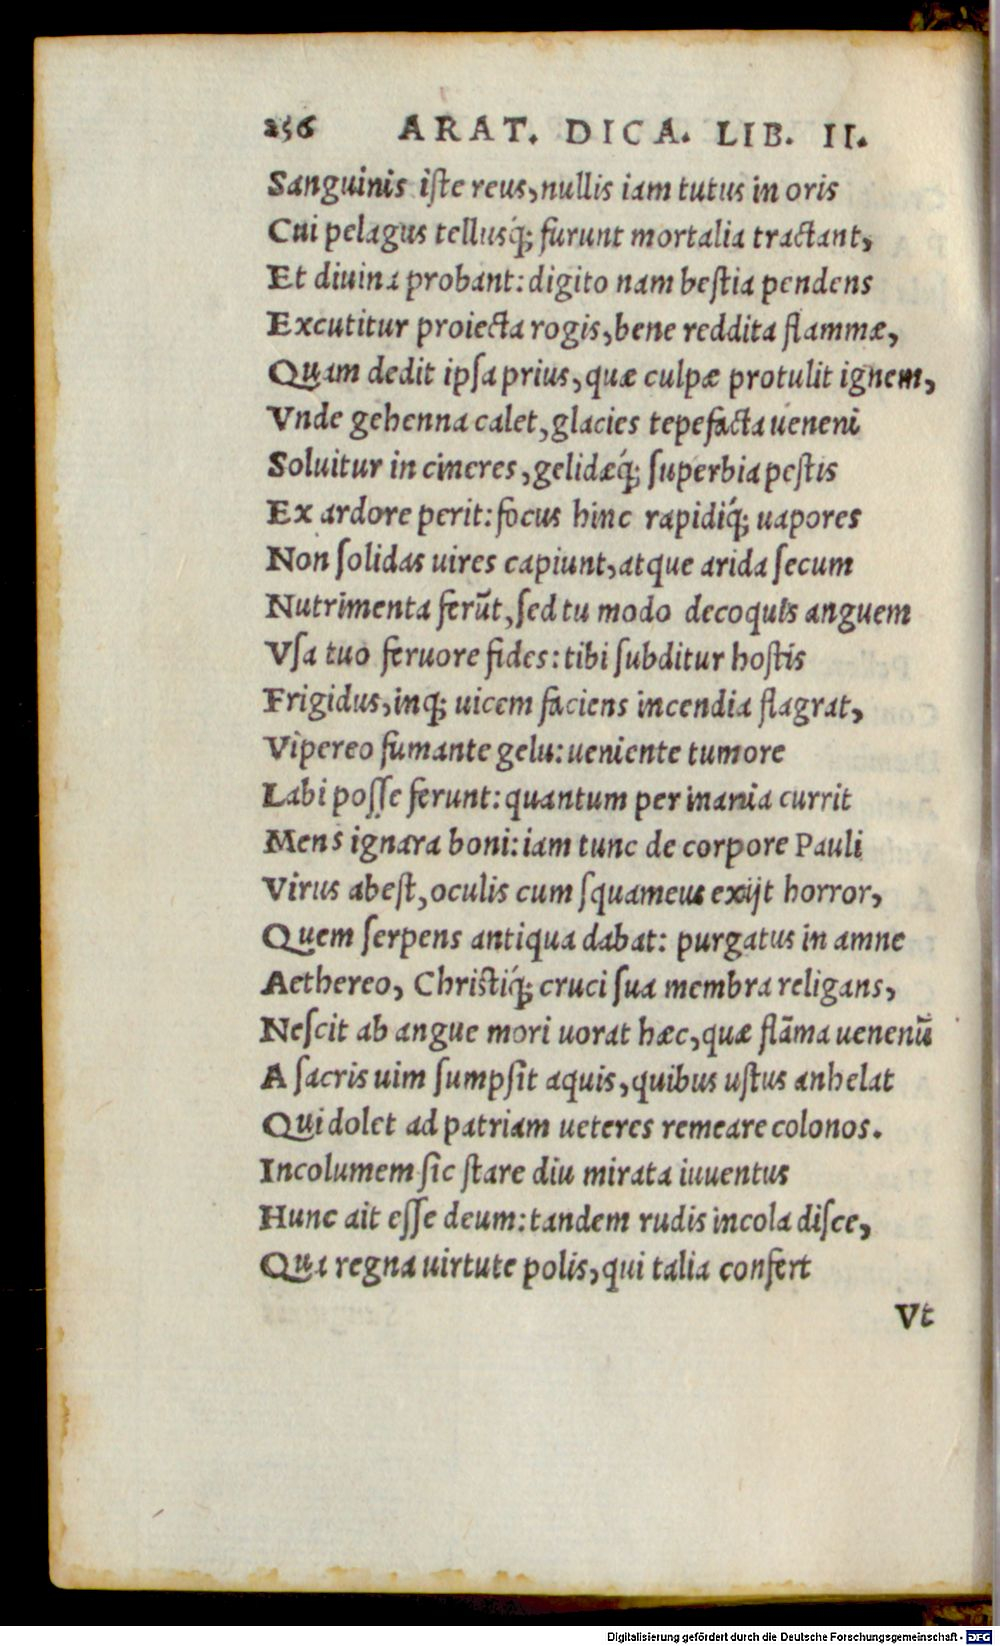 256 ARAT. DICA. LIB. II.
Sanguinis iſte reus, nullis iam tutus in oris
Cui pelagus tellusq́; furunt mortalia tractant,
Et diuina probant: digito nam beſtia pendens
Excutitur proiecta rogis, bene reddita flammæ,
Quam dedit ipſa prius, quæ culpæ protulit ignem,
Vnde gehenna calet, glacies tepefacta ueneni
Soluitur in cineres, gelidæq́; ſuperbia peſtis
Ex ardore perit: focus hinc rapidiq́; uapores
Non ſolidas uires capiunt, atque arida ſecum
Nutrimenta ferūt, ſed tu modo decoquis anguem
Vſa tuo feruore fides: tibi ſubditur hoſtis
Frigidus, inq; uicem faciens incendia flagrat,
Vipereo fumante gelu: ueniente tumore
Labi poſſe ferunt: quantum per inania currit
Mens ignara boni: iam tunc de corpore Pauli
Virus abeſt, oculis cum ſquameus exijt horror,
Quem ſerpens antiqua dabat: purgatus in amne
Aethereo, Chriſtiq́; cruci ſua membra religans,
Neſcit ab angue mori uorat hæc, quæ flāma uenenū
A ſacris uim ſumpſit aquis, quibus uſtus anhelat
Qui dolet ad patriam ueteres remeare colonos.
Incolumem ſic ſtare diu mirata iuuentus
Hunc ait eſſe deum: tandem rudis incola diſce,
Qua regna uirtute polis, qui talia confert
Vt
Digitalisierung gefördert durch die Deutsche Forschungsgemeinschaft - DFG